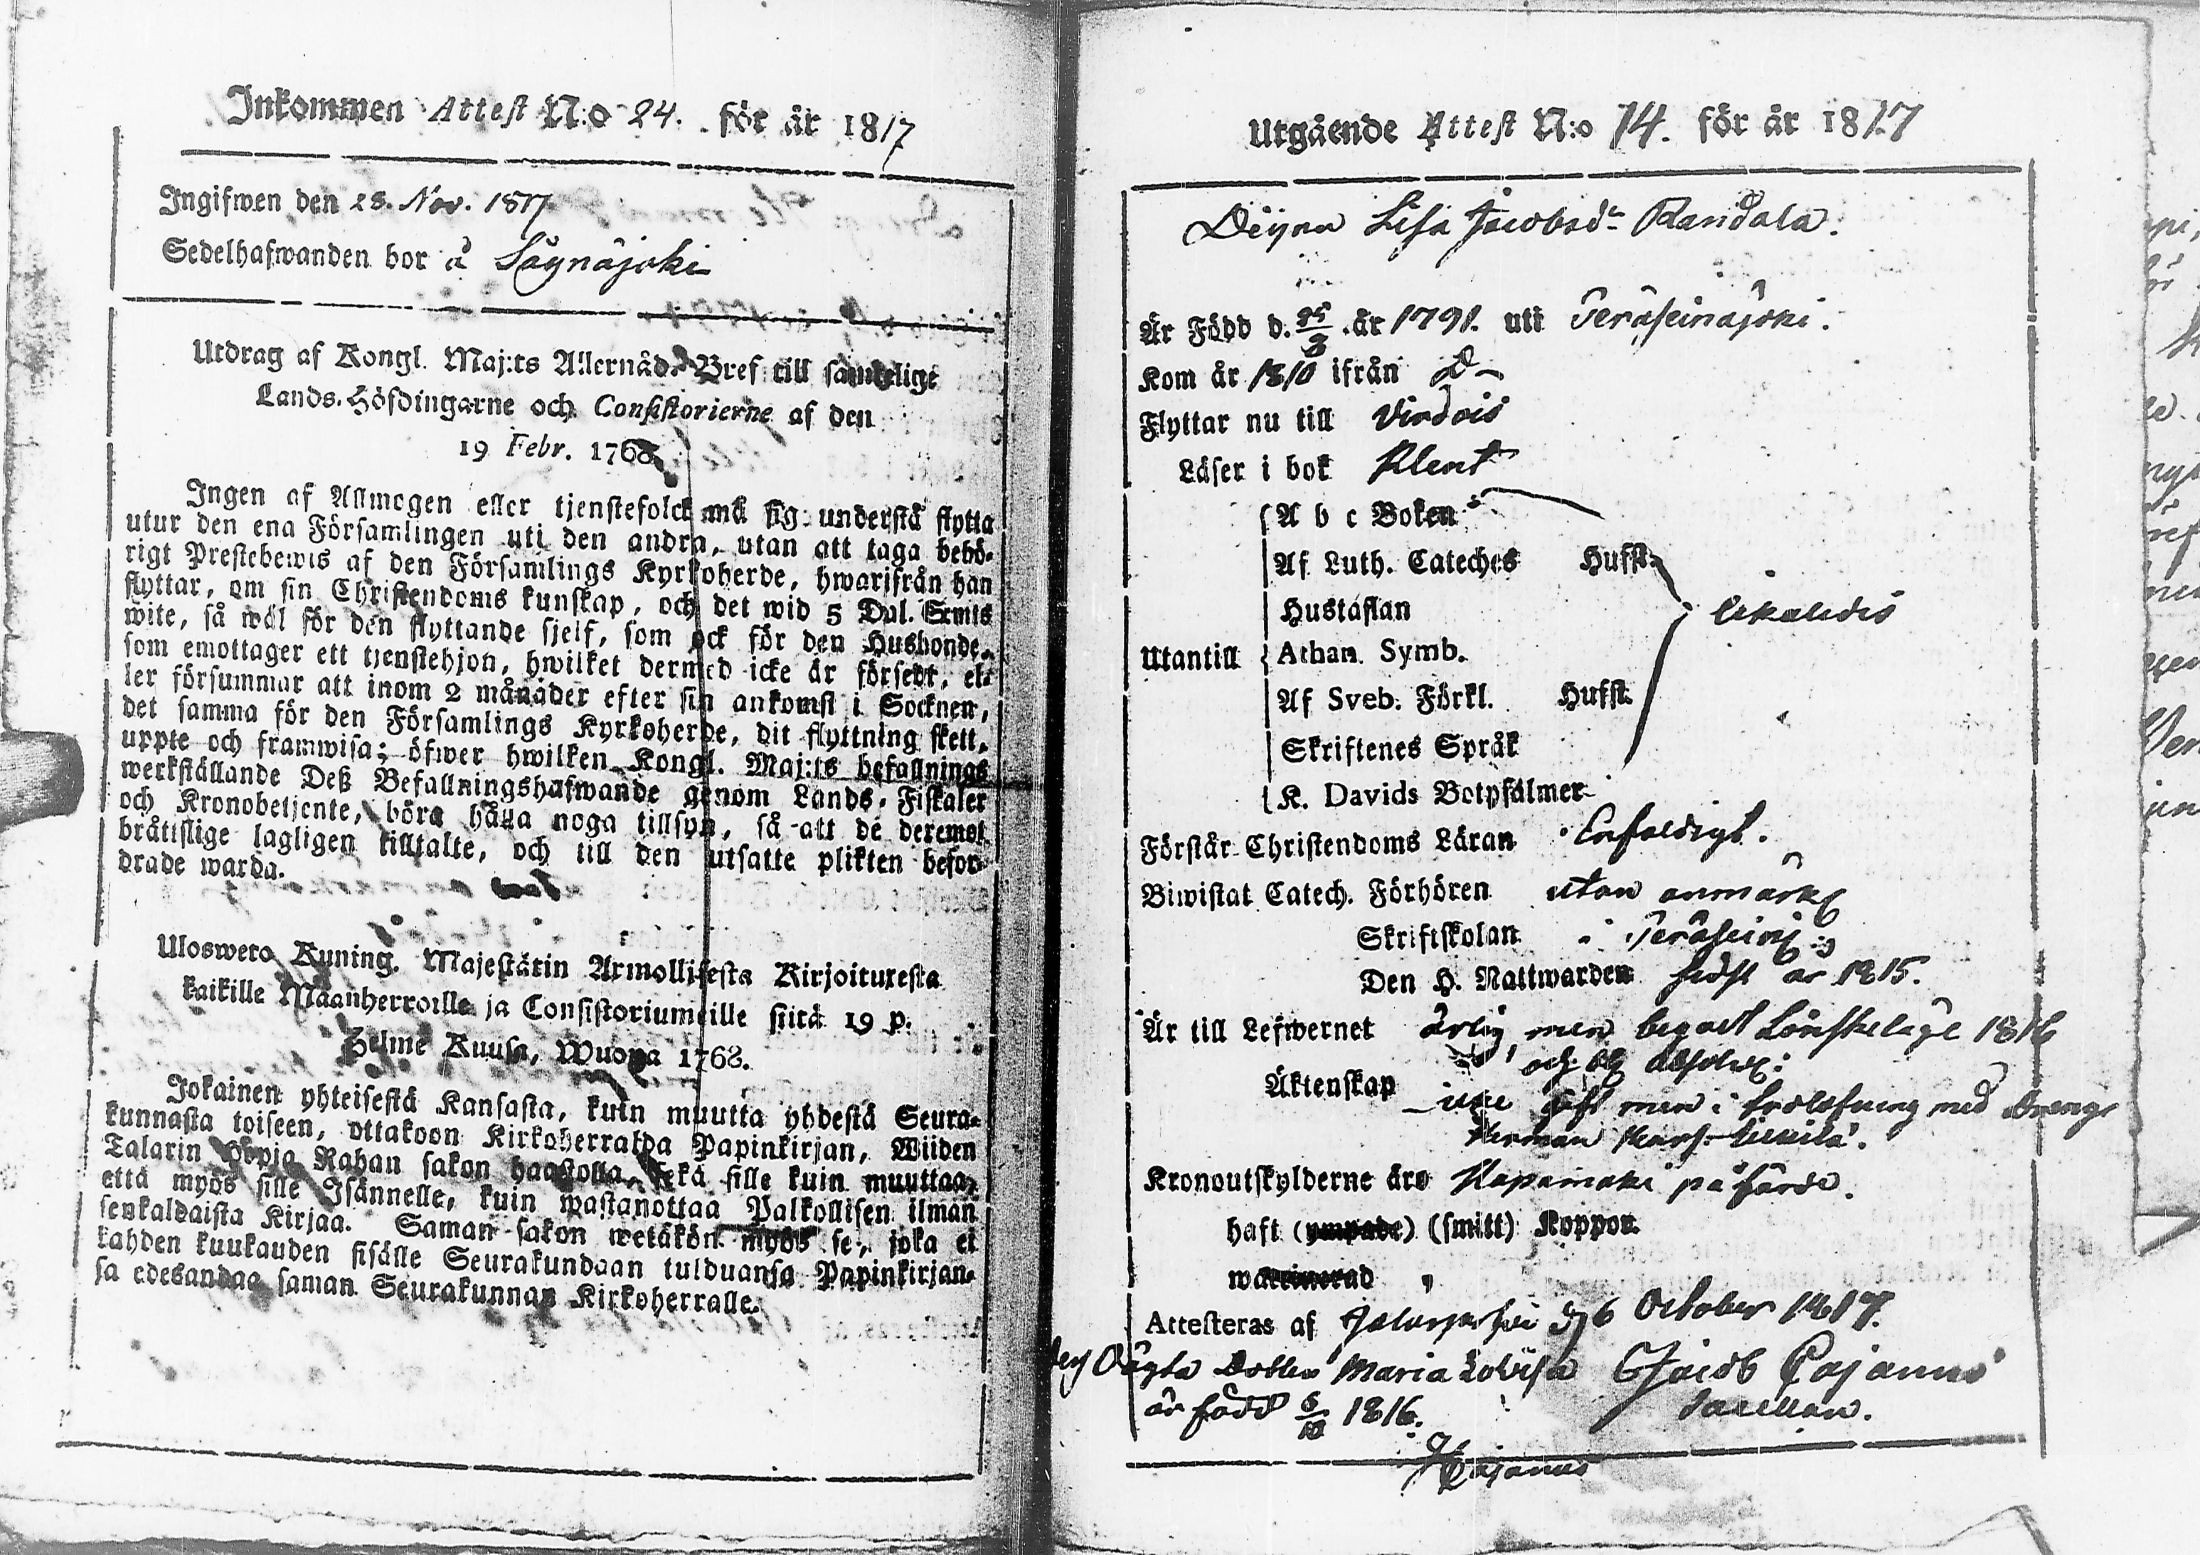 Inkommen Attest N:o 24. för år 1817
Ingifwen den 28. Nov. 1817
Sedelhafwanden bor å Säynäjoki
Utdrag af Kongl. Maj:ts Allernåd. Bref till samtelige
Lands-Höfdingarne och Consistorierne af den
19 Febr. 1768.
Ingen af Allmogen eller tjenstefolck må sig understå flytta
utur den ena Församlingen uti den andra, utan att taga behö-
rigt Prestebewis af den Församlings Kyrkoherde, hwarifrån han
flyttar, om sin Christendoms kunskap, och det wid 5 Dal. S:mts
wite, så wäl för den flyttande sjelf, som ock för den Husbonde,
som emottager ett tjenstehjon, hwilket dermed icke är försedt, el-
ler försummar att inom 2 månader efter sin ankomst i Socknen,
det samma för den Församlings Kyrkoherde, dit flyttning skett,
uppte och framwisa; öfwer hwilken Kongl. Maj:ts befallnings
werkställande Deß Befallningshafwande genom Lands-Fiskaler
och Kronobetjente, böra hålla noga tillsyn, så att de deremot
bråttslige lagligen tilltalte, och till den utsatte plikten befor-
drade warda.
Uloswero Kuning. Majestätin Armollisesta Kirjoituxesta
kaikille Maanherroille ja Consistoriumeille siitä 19 p.
Helme Kuusa, Wuona 1768.
Jokainen yhteisestä Kansasta, kuin muutta yhdestä Seura-
kunnasta toiseen, ottakoon Kirkoherralda Papinkirjan, Wiiden
Talarin Hopia Rahan sakon haastolla, sekä sille kuin muuttaa,
että myös sille Isännelle, kuin wastanottaa Palkollisen ilman
senkaldaista Kirjaa. Saman sakon wetäkön myös se, joka ei
kahden kuukauden sisälle Seurakundaan tulduansa Papinkirjan-
sa edesandaa saman Seurakunnan Kirkoherralle.
Utgående Attest N:o 14. för år 1817
Lisa Jacobsdr Randala.
Är Född d. 25/3 år 1791. uti Peräseinäjoki.
Kom år 1810 ifrån D
Flyttar nu till Virdois
Läser i bok Klent
A b c Boken
Af Luth. Cateches Husst.
Hustaflan likaledes
Utantill Athan. Symb.
Af Sveb. Förkl. Husst.
Skriftenes Språk
K. Davids Botpsalmer
Förstår Christendoms Läran Enfaldigt.
Biwistat Catech. Förhören utan anmärk
Skriftskolan i Peräseinj
Den H. Nattwarden sidst år 1815.
Är till Lefwernet ärlig, men begådt Lönskeläge 1816
och absolv:
Äktenskap icke gift men i trolofning med drenge
Herman
Kronoutskylderne äro på färde.
haft (ympade) (smitt) Koppor.
waccinerad
Attesteras af Jalasjerfwi d 6 October 1817.
Oägta Dotter Maria Lovisa Jacob Cajanus
är född 5/10 1816. Sacellan.
Cajanus